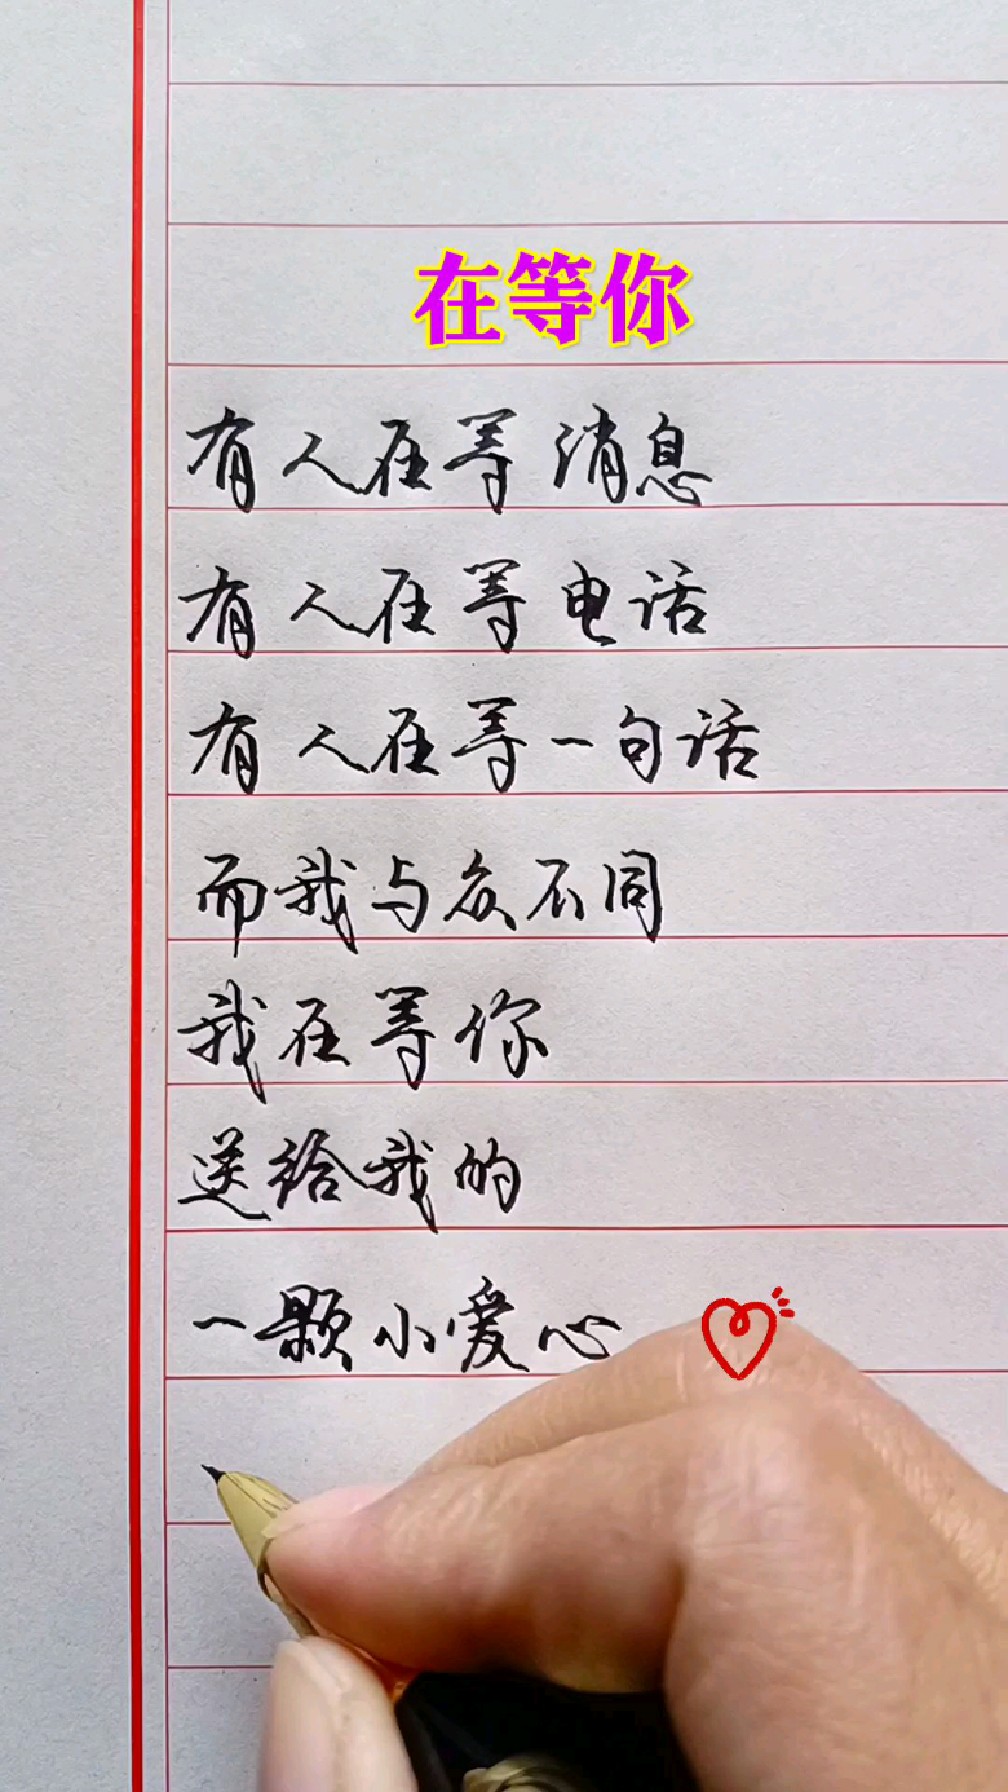 在等你
有人在等消息
有人在等电话
有人在等一句话
而我与众不同
我在等你
送给我的
一颗小爱心